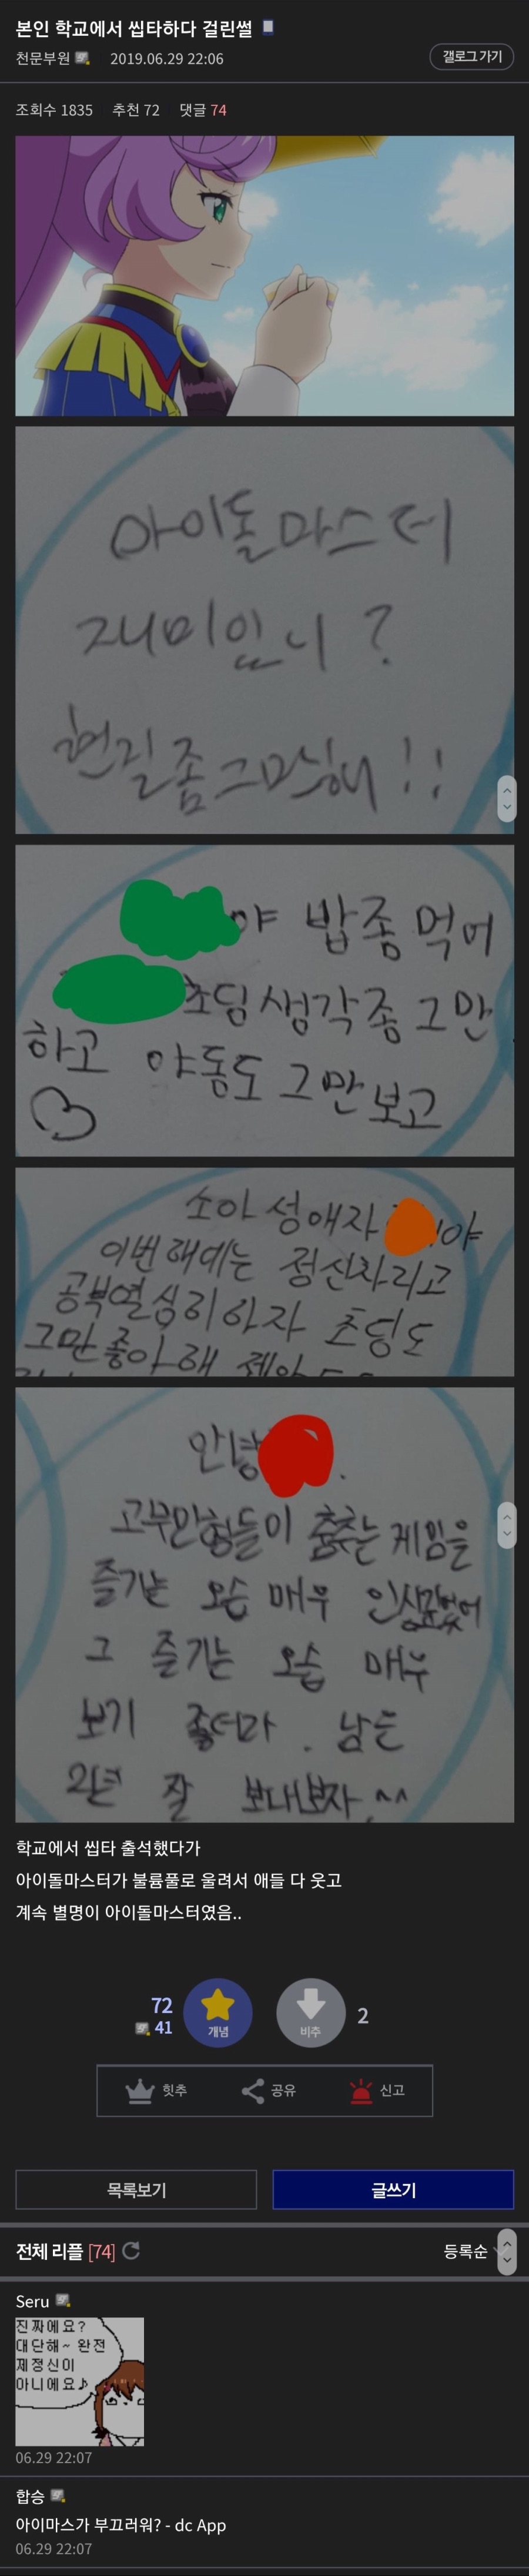 본인 학교에서 씹타하다 걸린썰
천문부원 2019.06.29 22:06
갤로그 가기
조회수 1835 추천 72 댓글 74
아이돌마스터
재미있니?
현질좀그만해!!
야 밥좀먹어
초딩생각좀그만
하고 야동도 그만보고
소아성애자 야
이번해에는 정신차리고
공부열심히하자 초딩도
그만좋아해
안녕 .
고부만험들이 춤추는 게임을
즐기는 모습 매우 인상깊었어
그 즐기는 모습 매우
보기 좋더라. 남은
2년 잘 보내보자 ^^
학교에서 씹타 출석했다가
아이돌마스터가 불륨풀로 울려서 애들 다 웃고
계속 별명이 아이돌마스터였음..
72
41
개념
비추
2
힛추 공유 신고
목록보기 글쓰기
전체 리플 [74] 등록순
Seru
진짜에요?
대단해~ 완전
제정신이
아니에요♪
06.29 22:07
합승
아이마스가 부끄러워? - dc App
06.29 22:07